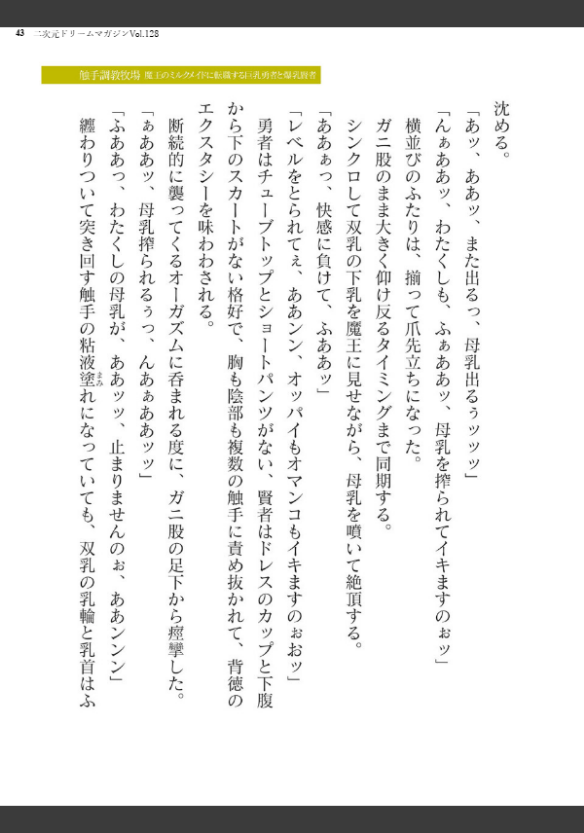 43 二次元ドリームマガジンVol.128
触手調教牧場 魔王のミルクメイドに転職する巨乳勇者と爆乳賢者
沈める。
「あッ、ああッ、また出るっ、母乳出るぅッッッ」
「んぁああッ、わたくしも、ふぁああッ、母乳を搾られてイキますのぉッ」
横並びのふたりは、揃って爪先立ちになった。
ガニ股のまま大きく仰け反るタイミングまで同期する。
シンクロして双乳の下乳を魔王に見せながら、母乳を噴いて絶頂する。
「ああぁっ、快感に負けて、ふああッ」
「レベルをとられてぇ、ああンン、オッパイもオマンコもイキますのぉおッ」
勇者はチューブトップとショートパンツがない、賢者はドレスのカップと下腹
から下のスカートがない格好で、胸も陰部も複数の触手に責め抜かれて、背徳の
エクスタシーを味わわされる。
断続的に襲ってくるオーガズムに呑まれる度に、ガニ股の足下から痙攣した。
「ぁああッ、母乳搾られるぅっ、んあぁああッッ」
「ふああっ、わたくしの母乳が、ああッッ、止まりませんのぉ、ああンンン」
纏わりついて突き回す触手の粘液塗れになっていても、双乳の乳輪と乳首はふ
まみ